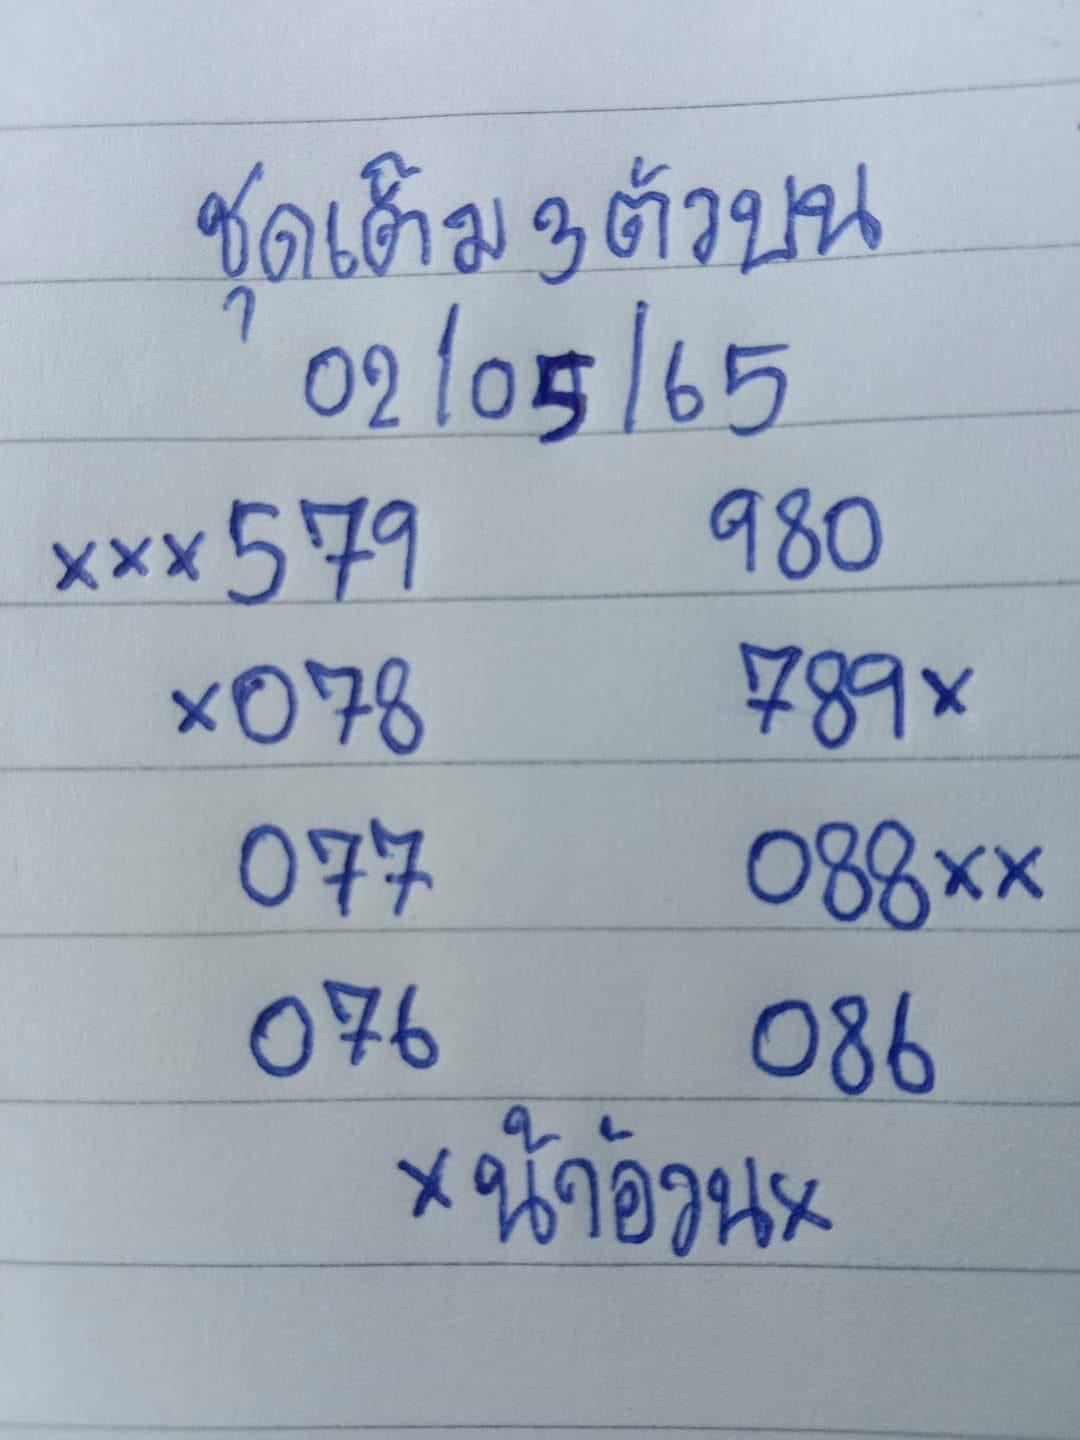 ชุดเต็ม 3 ตัวบน
02/05/65
xxx579 980
x078 789x
077 088xx
076 086
xน้าอ้วนx